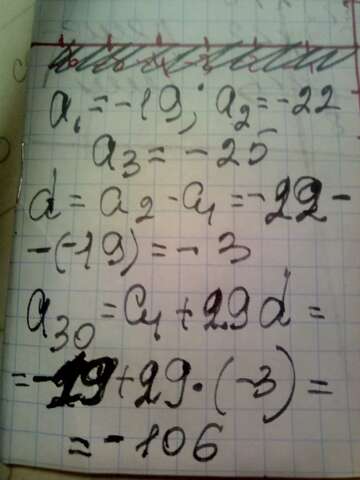 a₁ = -19; a₂ = -22
a₃ = -25
d = a₂ - a₁ = -22 -
- (-19) = -3
a₃₀ = a₁ + 29d =
= -19 + 29 · (-3) =
= -106